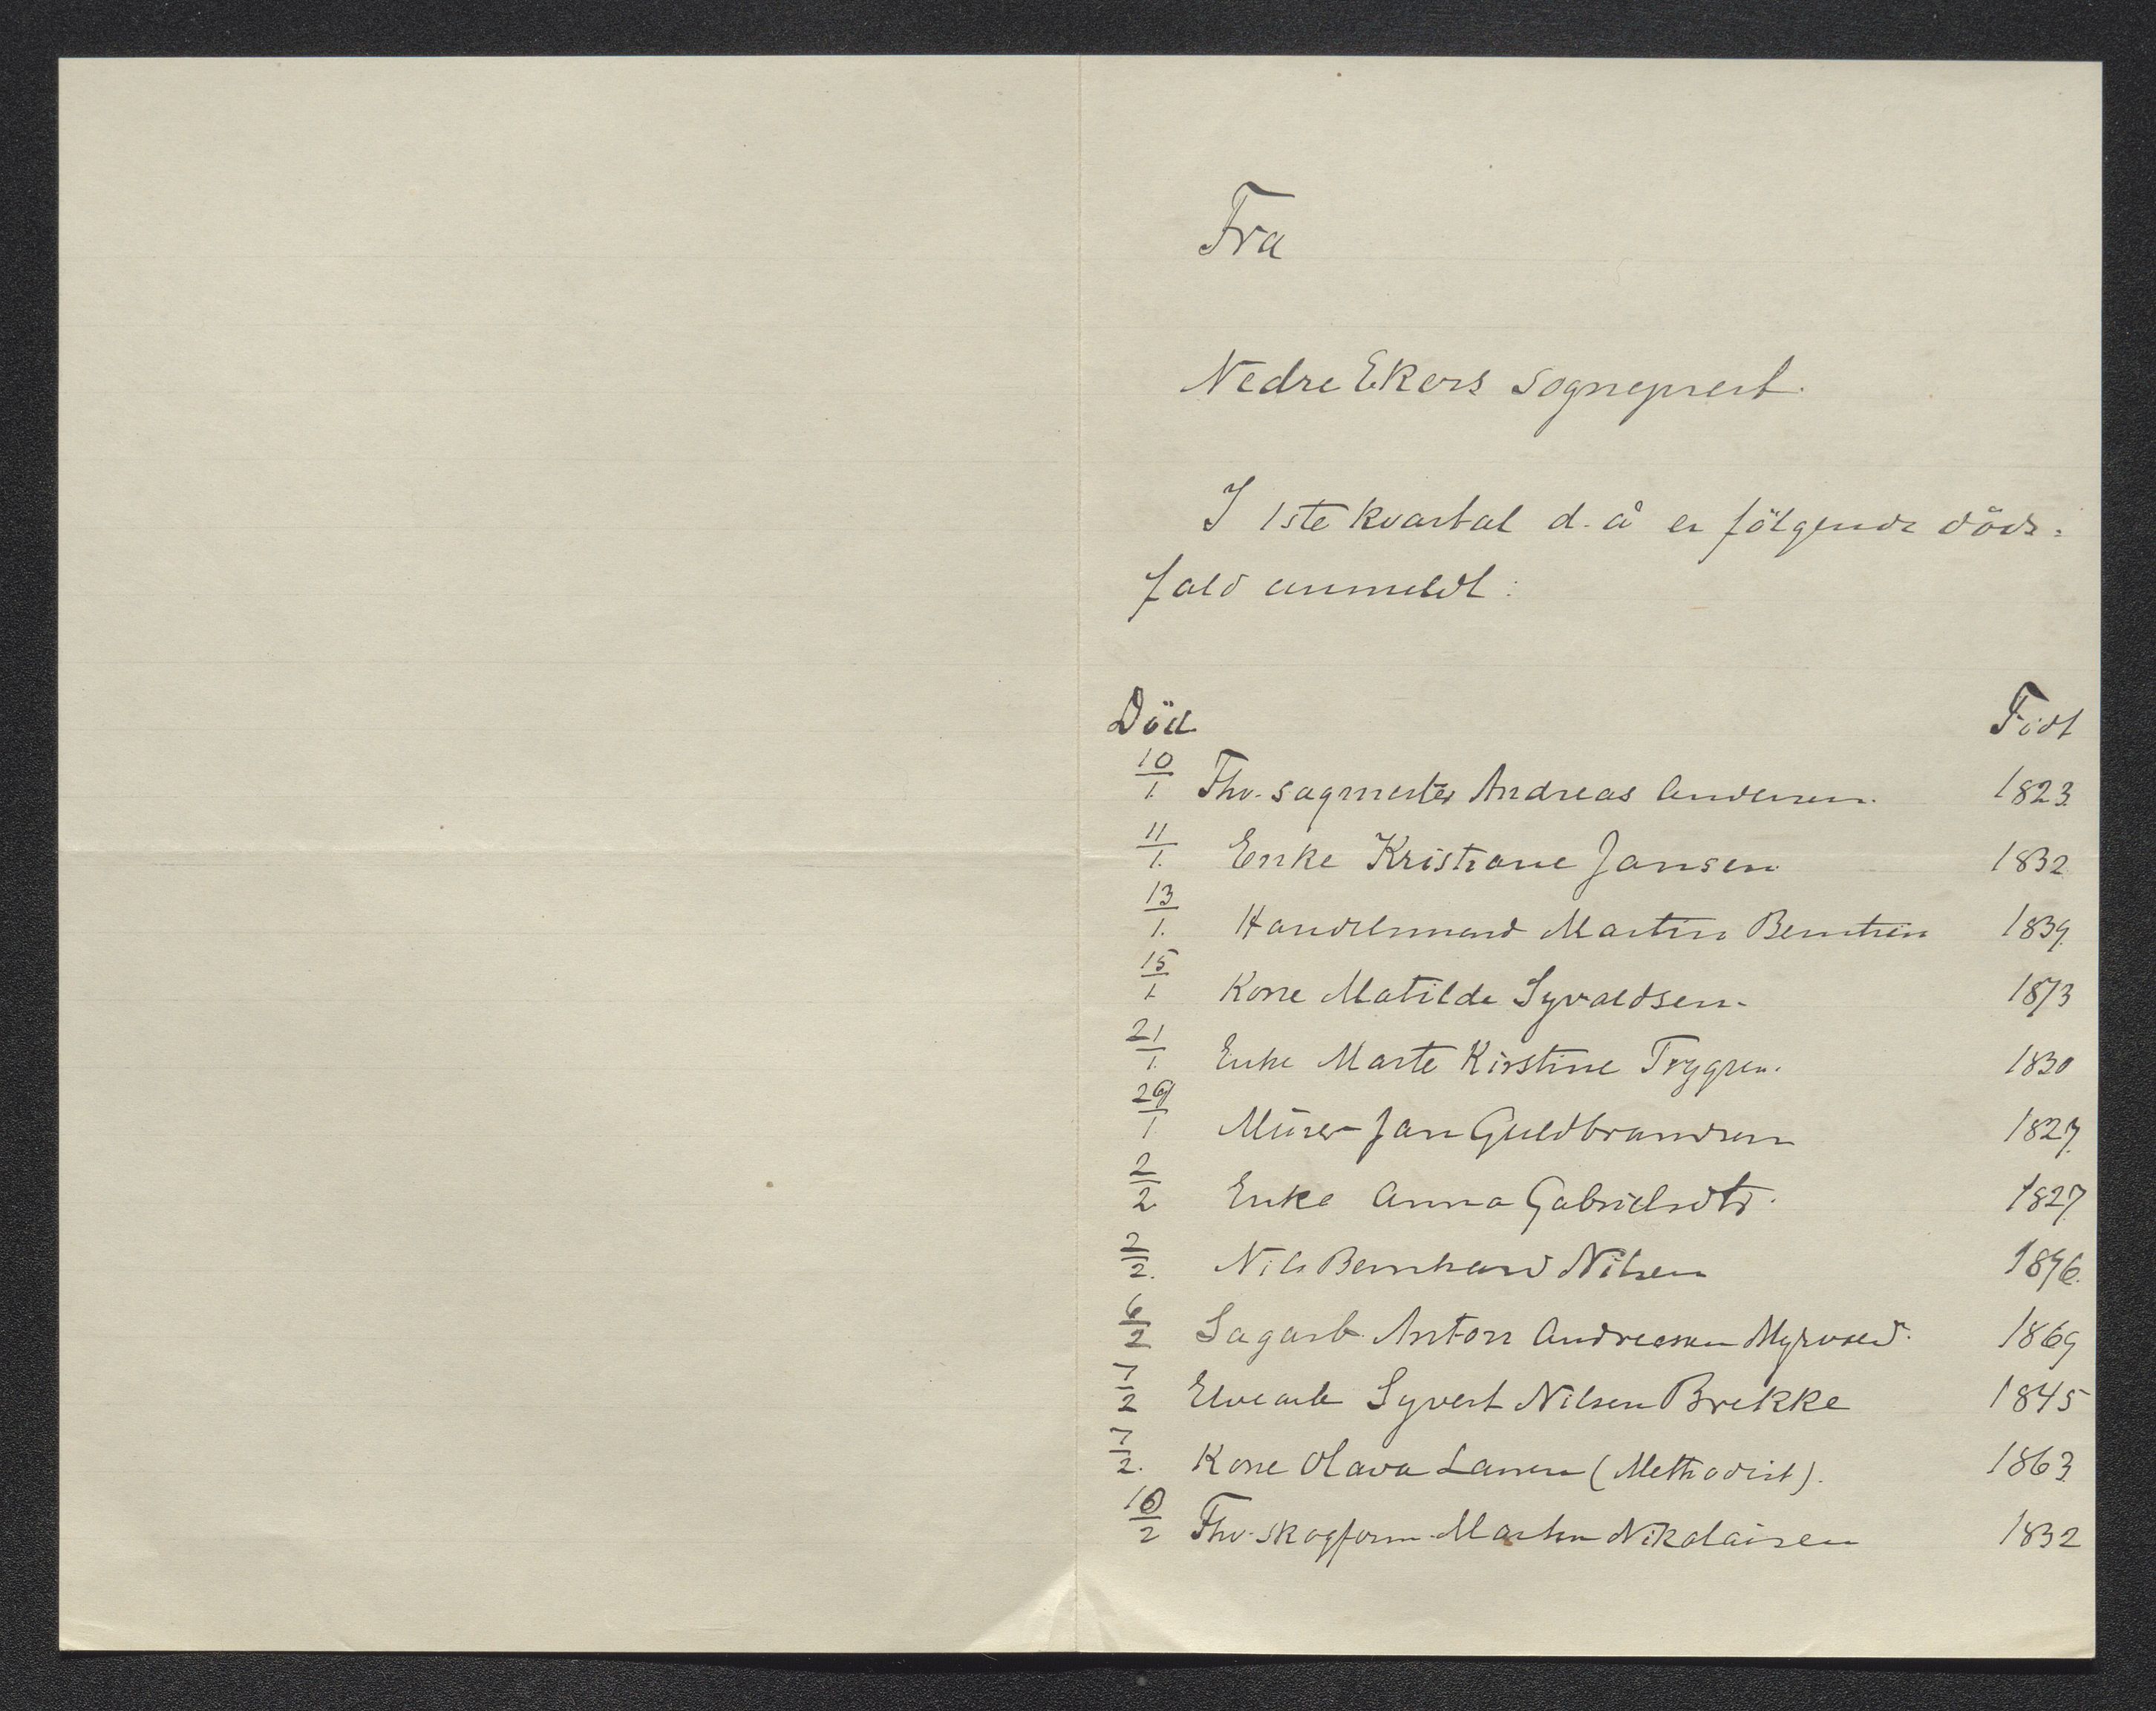 Fra
Nedre Ekers sogneprest.
I 1ste kvartal d. å er fölgende döds=
fald anmeldt:
Död Födt
10/1. Fhv. sagmester Andreas Andersen. 1823.
11/1. Enke Kristiane Jansen 1832
13/1. Handelsmand Martin Berntsen 1839.
15/1. Kone Matilde Syvaldsen. 1873
21/1. Enke Marte Kirstine Trygsen. 1830
29/1 Murer Jan Guldbrandsen 1827.
2/2 Enke Anna Gabrielsdtr. 1827.
2/2. Nils Bernhard Nilsen 1896.
6/2 Sagarb. Anton Andreasen Myrvold. 1869
7/2 Elvearb Syvert Nilsen Brekke 1845
7/2. Kone Olava Larsen (Methodist). 1863.
10/2 Fhv. skogform. Martin Nikolaisen 1832